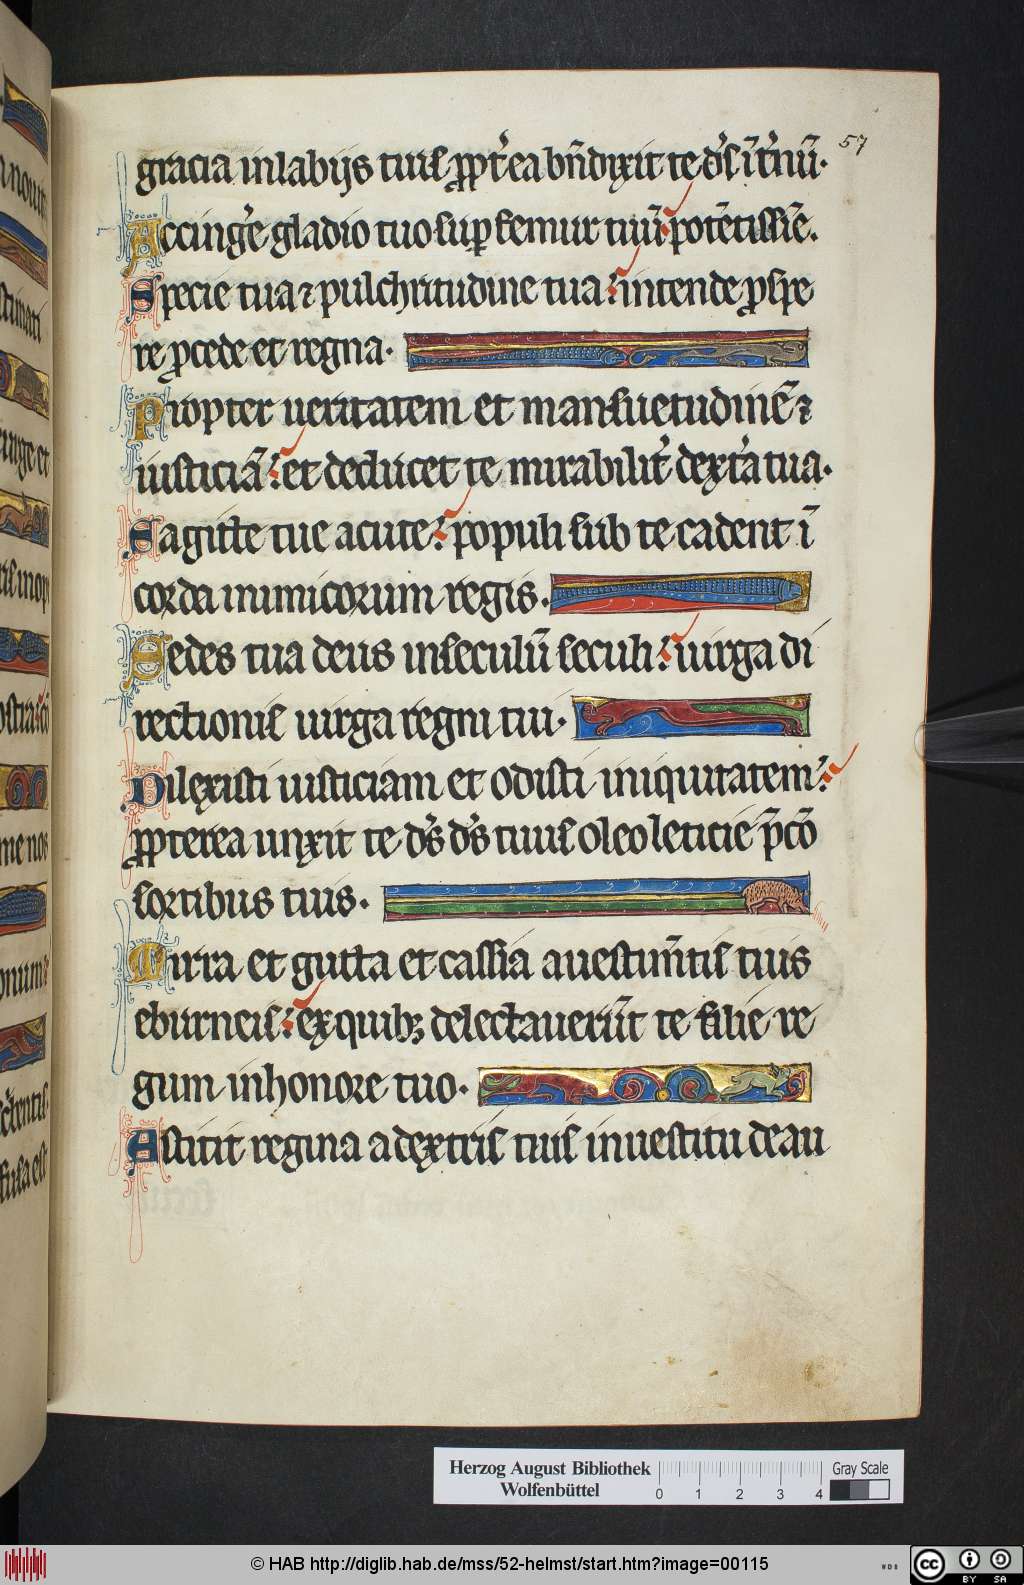 57
gracia inlabijs tuis ꝓpt̓ea bn̄dixit te d̓s ĩt̓nū·
Accinge̓ gladio tuo sup femur tuū: potētissīe.
Specie tua ⁊ pulchritudine tua: intende ꝓspe
re ꝓcede et regna·
Propter ueritatem et mansuetudinē ⁊
iusticiā: et deducet te mirabilit̓ dext̓a tua·
Sagitte tue acute: populi sub te cadent ī
corda inimicorum regis.
Sedes tua deus inseculū seculi: uirga di
rectionis uirga regni tui·
Dilexisti iusticiam et odisti iniquitatem:
ꝓpterea unxit te d̓s d̓s tuus oleo leticie p̄ cō
sortibus tuis·
Mirra et gutta et cassia auestim̄tis tuis
eburneis: ex quibꝫ delectauerūt te filie re
gum inhonore tuo·
Astitit regina adextris tuis inuestitu deau
Herzog August Bibliothek
Wolfenbüttel
0 1 2 3 4
Gray Scale
© HAB http://diglib.hab.de/mss/52-helmst/start.htm?image=00115
WDB
cc BY SA